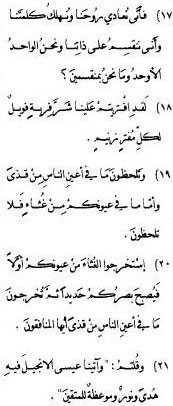 (١٧) فأنّى نعادي روحنا ونهلك كلمتنا
وأنّى ننقسم على ذاتنا ونحن الواحد
الأوحد وما نحن بمنقسمين ؟
(١٨) لقد افتريتم علينا شرّ فرية فويل
لكل مفتر زنيم .
(١٩) وتلحظون ما في أعين الناس من قذى
وأمّا ما في عيونكم من غُثاء فلا
تلحظون .
(٢٠) إستخرجوا الغثاءَ من عيونكم أولاً
فيصبح بصركم حديداً ثم تخرجون
ما في أعين الناس من قذى أيها المنافقون .
(٢١) وقلتم : "وآتينا عيسى الانجيل فيه
هدىً ونورٌ وموعظةٌ للمتقين" .